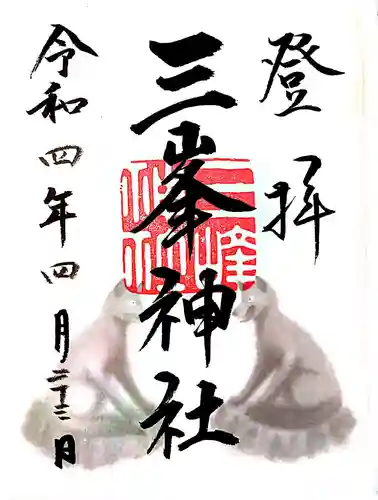 登拝
三峯神社
令和四年四月二十二日